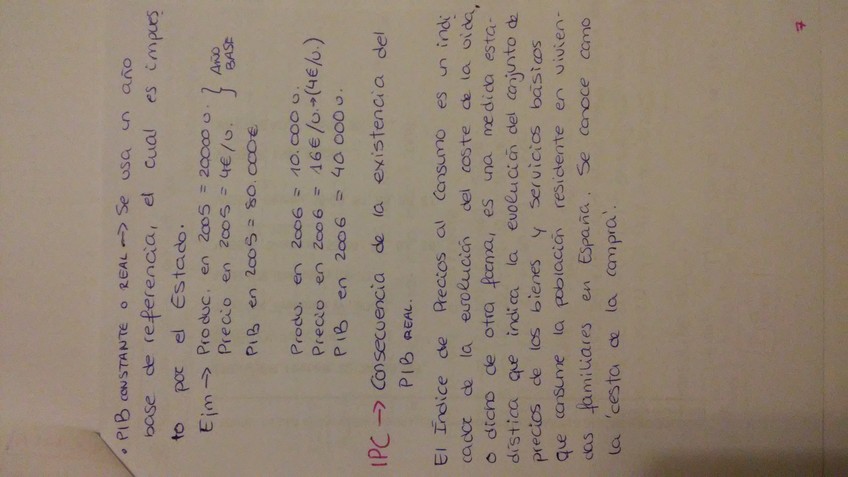 · PIB CONSTANTE O REAL → Se usa un año
base de referencia, el cual es impues
to por el Estado.
Ejm → Produc. en 2005 = 20000 u. } AÑO
Precio en 2005 = 4€/u. BASE
PIB en 2005 = 80.000€
Produ. en 2006 = 10.000 u.
Precio en 2006 = 16€/u.→(4€/u.)
PIB en 2006 = 40 000 u.
IPC → Consecuencia de la existencia del
PIB REAL.
El Índice de Precios al Consumo es un indi
cador de la evolución del coste de la vida,
o dicho de otra forma, es una medida esta-
dística que indica la evolución del conjunto de
precios de los bienes y servicios básicos
que consume la población residente en vivien-
das familiares en España. Se conoce como
la 'cesta de la compra'.
7